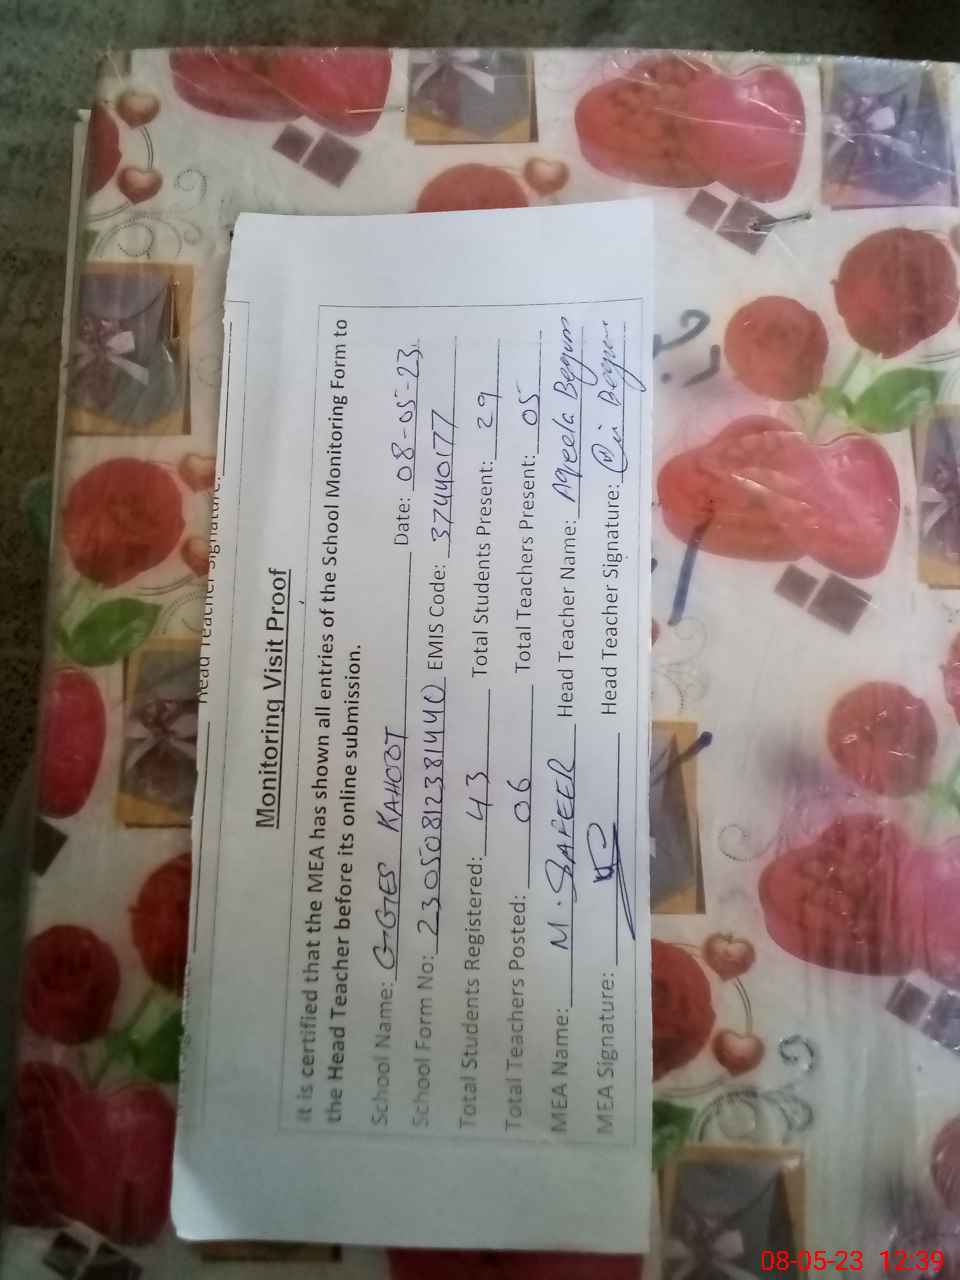 Head Teacher Signature:
Monitoring Visit Proof
It is certified that the MEA has shown all entries of the School Monitoring Form to
the Head Teacher before its online submission.
School Name: GGES KAHOOT Date: 08-05-23
School Form No: 230508123811440 EMIS Code: 37440177
Total Students Registered: 43 Total Students Present: 29
Total Teachers Posted: 06 Total Teachers Present: 05
MEA Name: M. SAFEER Head Teacher Name: Aqeela Begum
MEA Signature: Head Teacher Signature: Begum
08-05-23 12:39